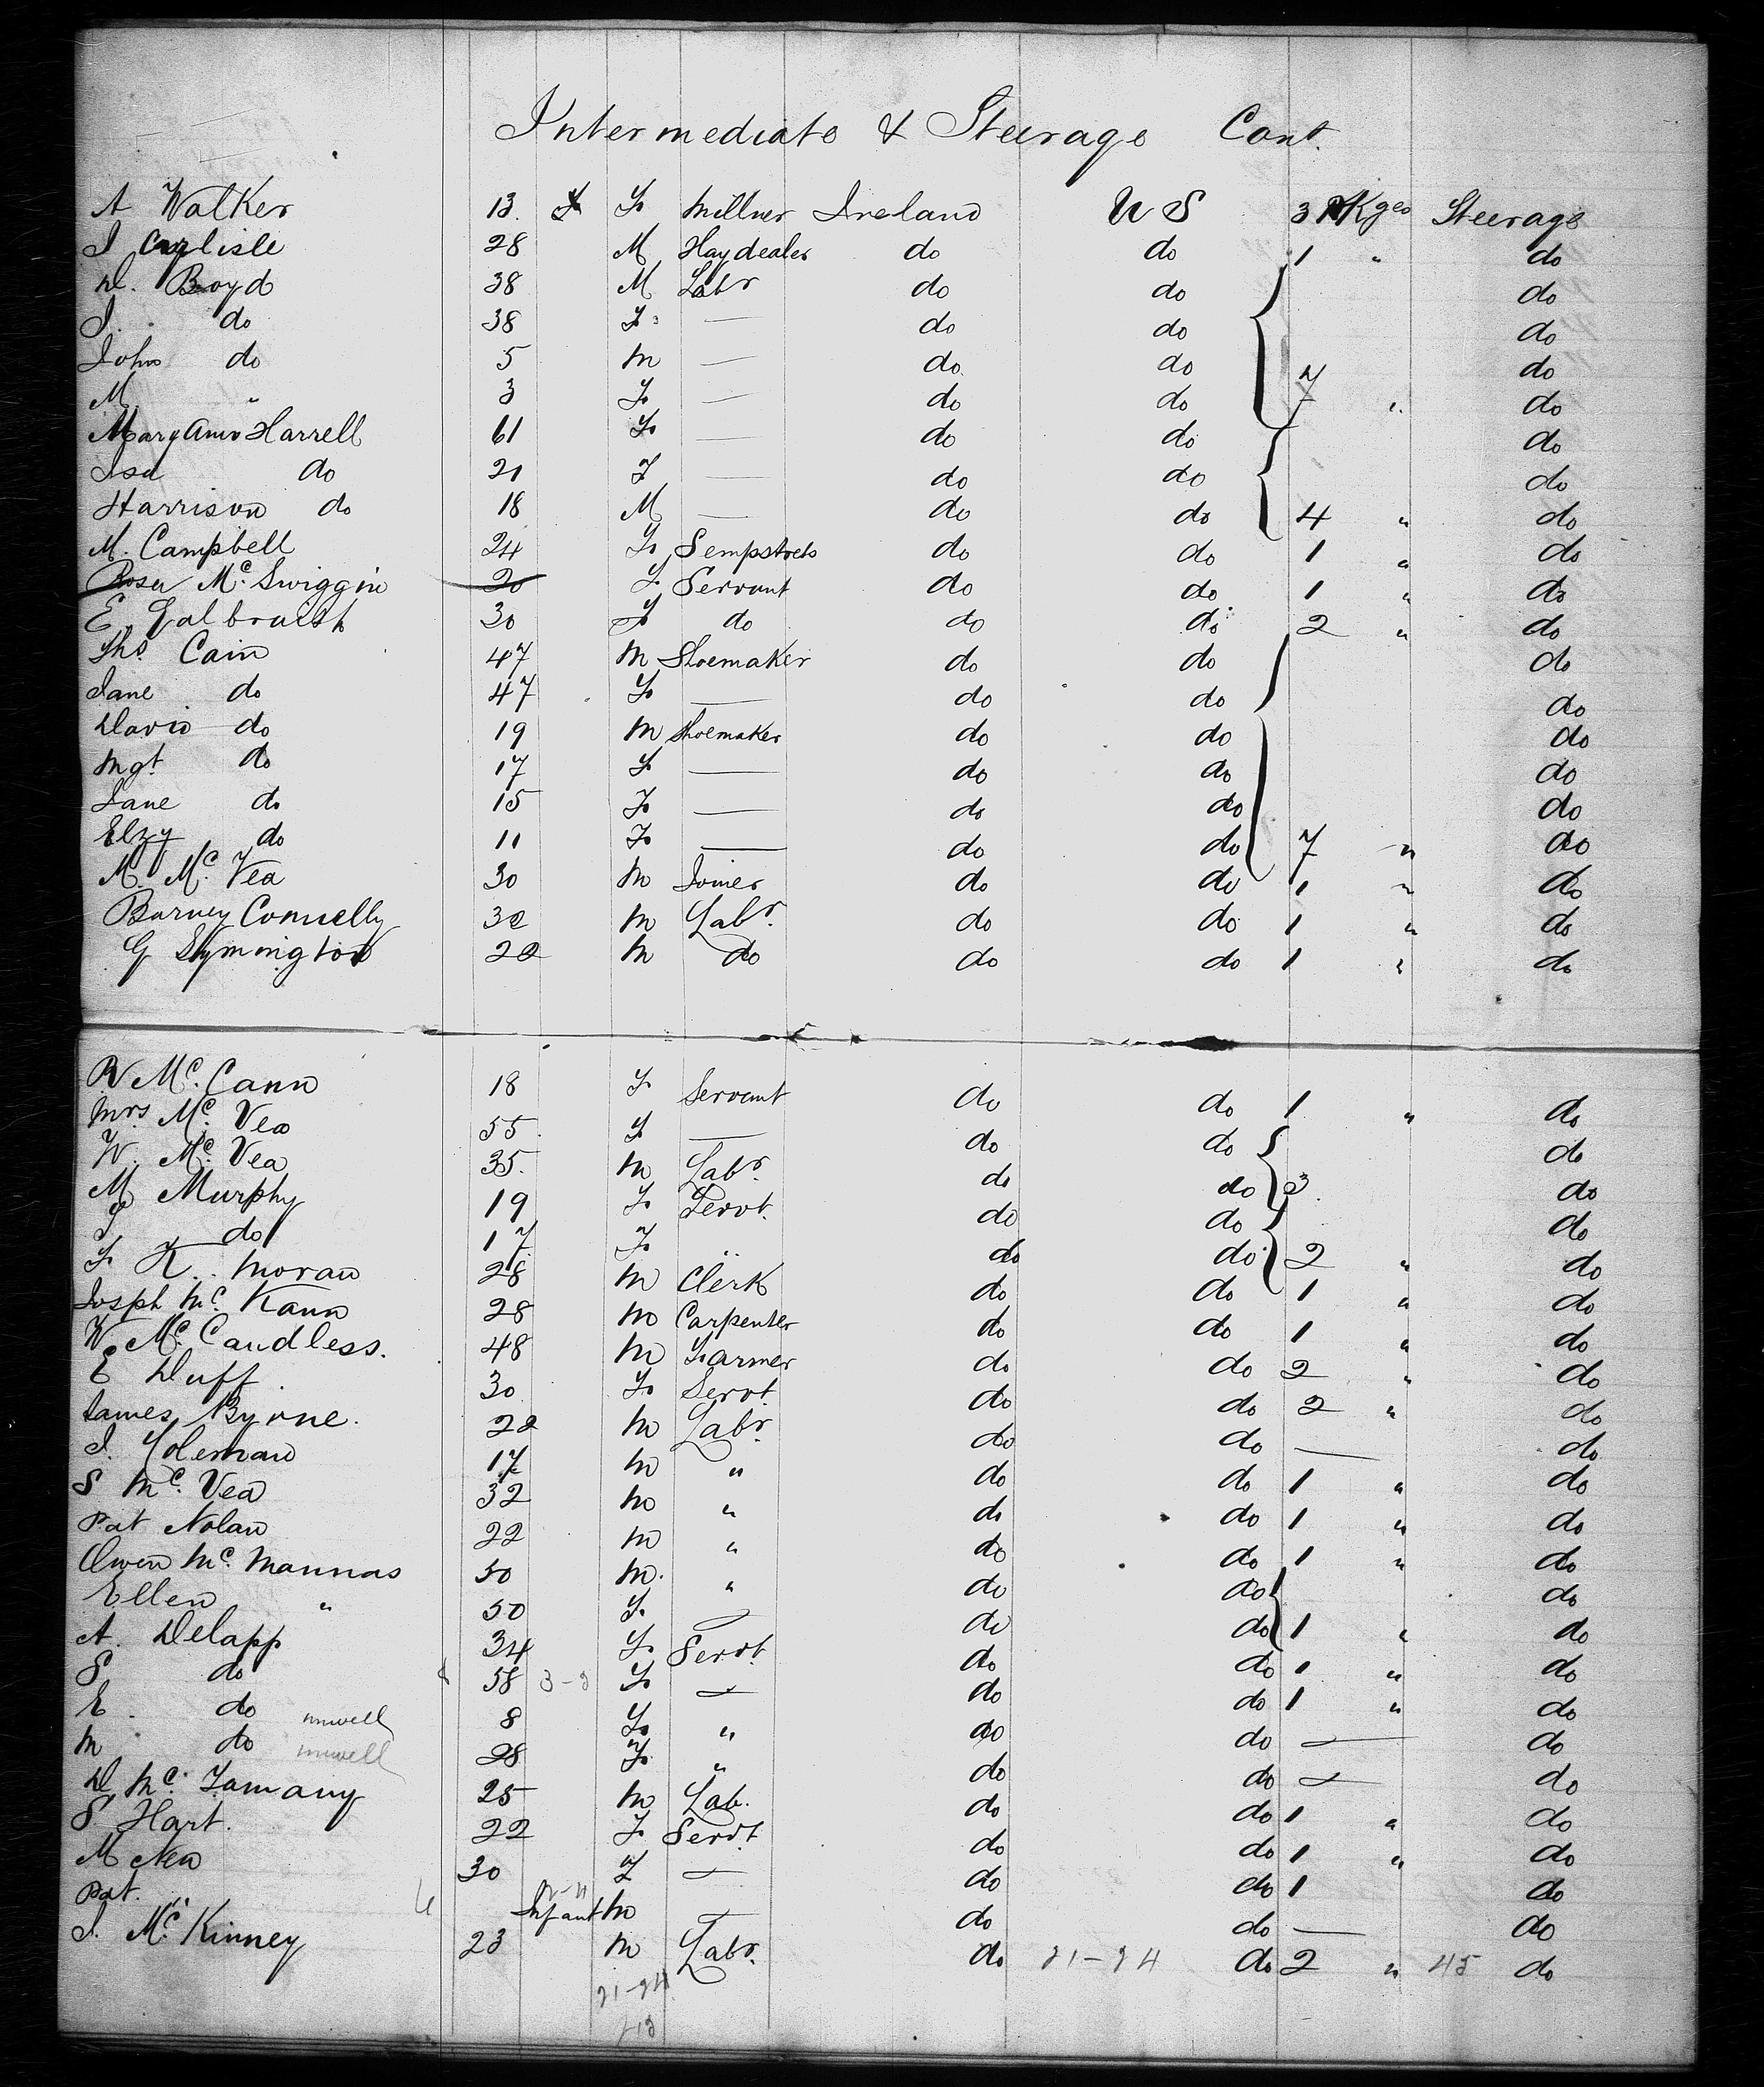 Intermediate & Steerage Cont.
A Walker 13. F Millner Ireland U S 3 PKges Steerage
J Carlisle 28 M Haydealer do do 1 " do
D. Boyd 38 M Labr do do do
J. do 38 F. — do do do
John do 5 M — do do do
M. " 3 F. — do do 7 " do
Mary Ann Harrell 61 F. — do do do
Isa do 21 F — do do do
Harrison do 18 M — do do 4 " do
M. Campbell 24 F. Sempstress do do 1 " do
Rosa Mc. Swiggin 20 F. Servant do do 1 " do
E. Galbraith 30 F do do do 2 " do
Thos. Cain 47 M Shoemaker do do do
Jane do 47 F. — do do do
David do 19 M Shoemaker do do do
Mgt. do 17 F. — do do do
Jane do 15 F. — do do do
Elzy do 11 F. — do do 7 " do
M. Mc. Vea 30 M Joiner do do 1 " do
Barney Connelly 32 M Labr. do do 1 " do
G Symington 22 M do do do 1 " do
R Mc. Cann 18 F. Servant do do 1 " do
Mrs Mc. Vea 55. F. — do do do
W. Mc. Vea 35. M Labr. do do 3. do
M Murphy 19 F. Servt. do do do
do 17 F. " do do 2 " do
F. K. Moran 28 M Clerk do do 1 " do
Josph Mc. Kann 28 M Carpenter do do 1 " do
W. Mc. Candless. 48 M Farmer do do 2 " do
E Duff. 30 F. Servt. do do 2 " do
James Byrne. 22 M Labr. do do — do
J. Coleman 17 M " do do 1 " do
S Mc. Vea 32 M " do do 1 " do
Pat Nolan 22 M " do do 1 " do
Owen Mc. Mannas 50 M. " do do do
Ellen " 50 F. — do do 1 " do
A. Delapp 34 F. Servt. do do 1 " do
S do 58 F. — do do 1 " do
E. do unwell 8 F. " do do — do
M do unwell 28 F. " do do — do
D. Mc. Tamany 25 M Lab. do do 1 " do
S Hart. 22 F. Servt do do 1 " do
M Nea 30 F — do do 1 do
Pat. " Infant M — do do — do
J. Mc. Kinney 23 M Labr. do 21-24 do 2 " 45 do
21-24